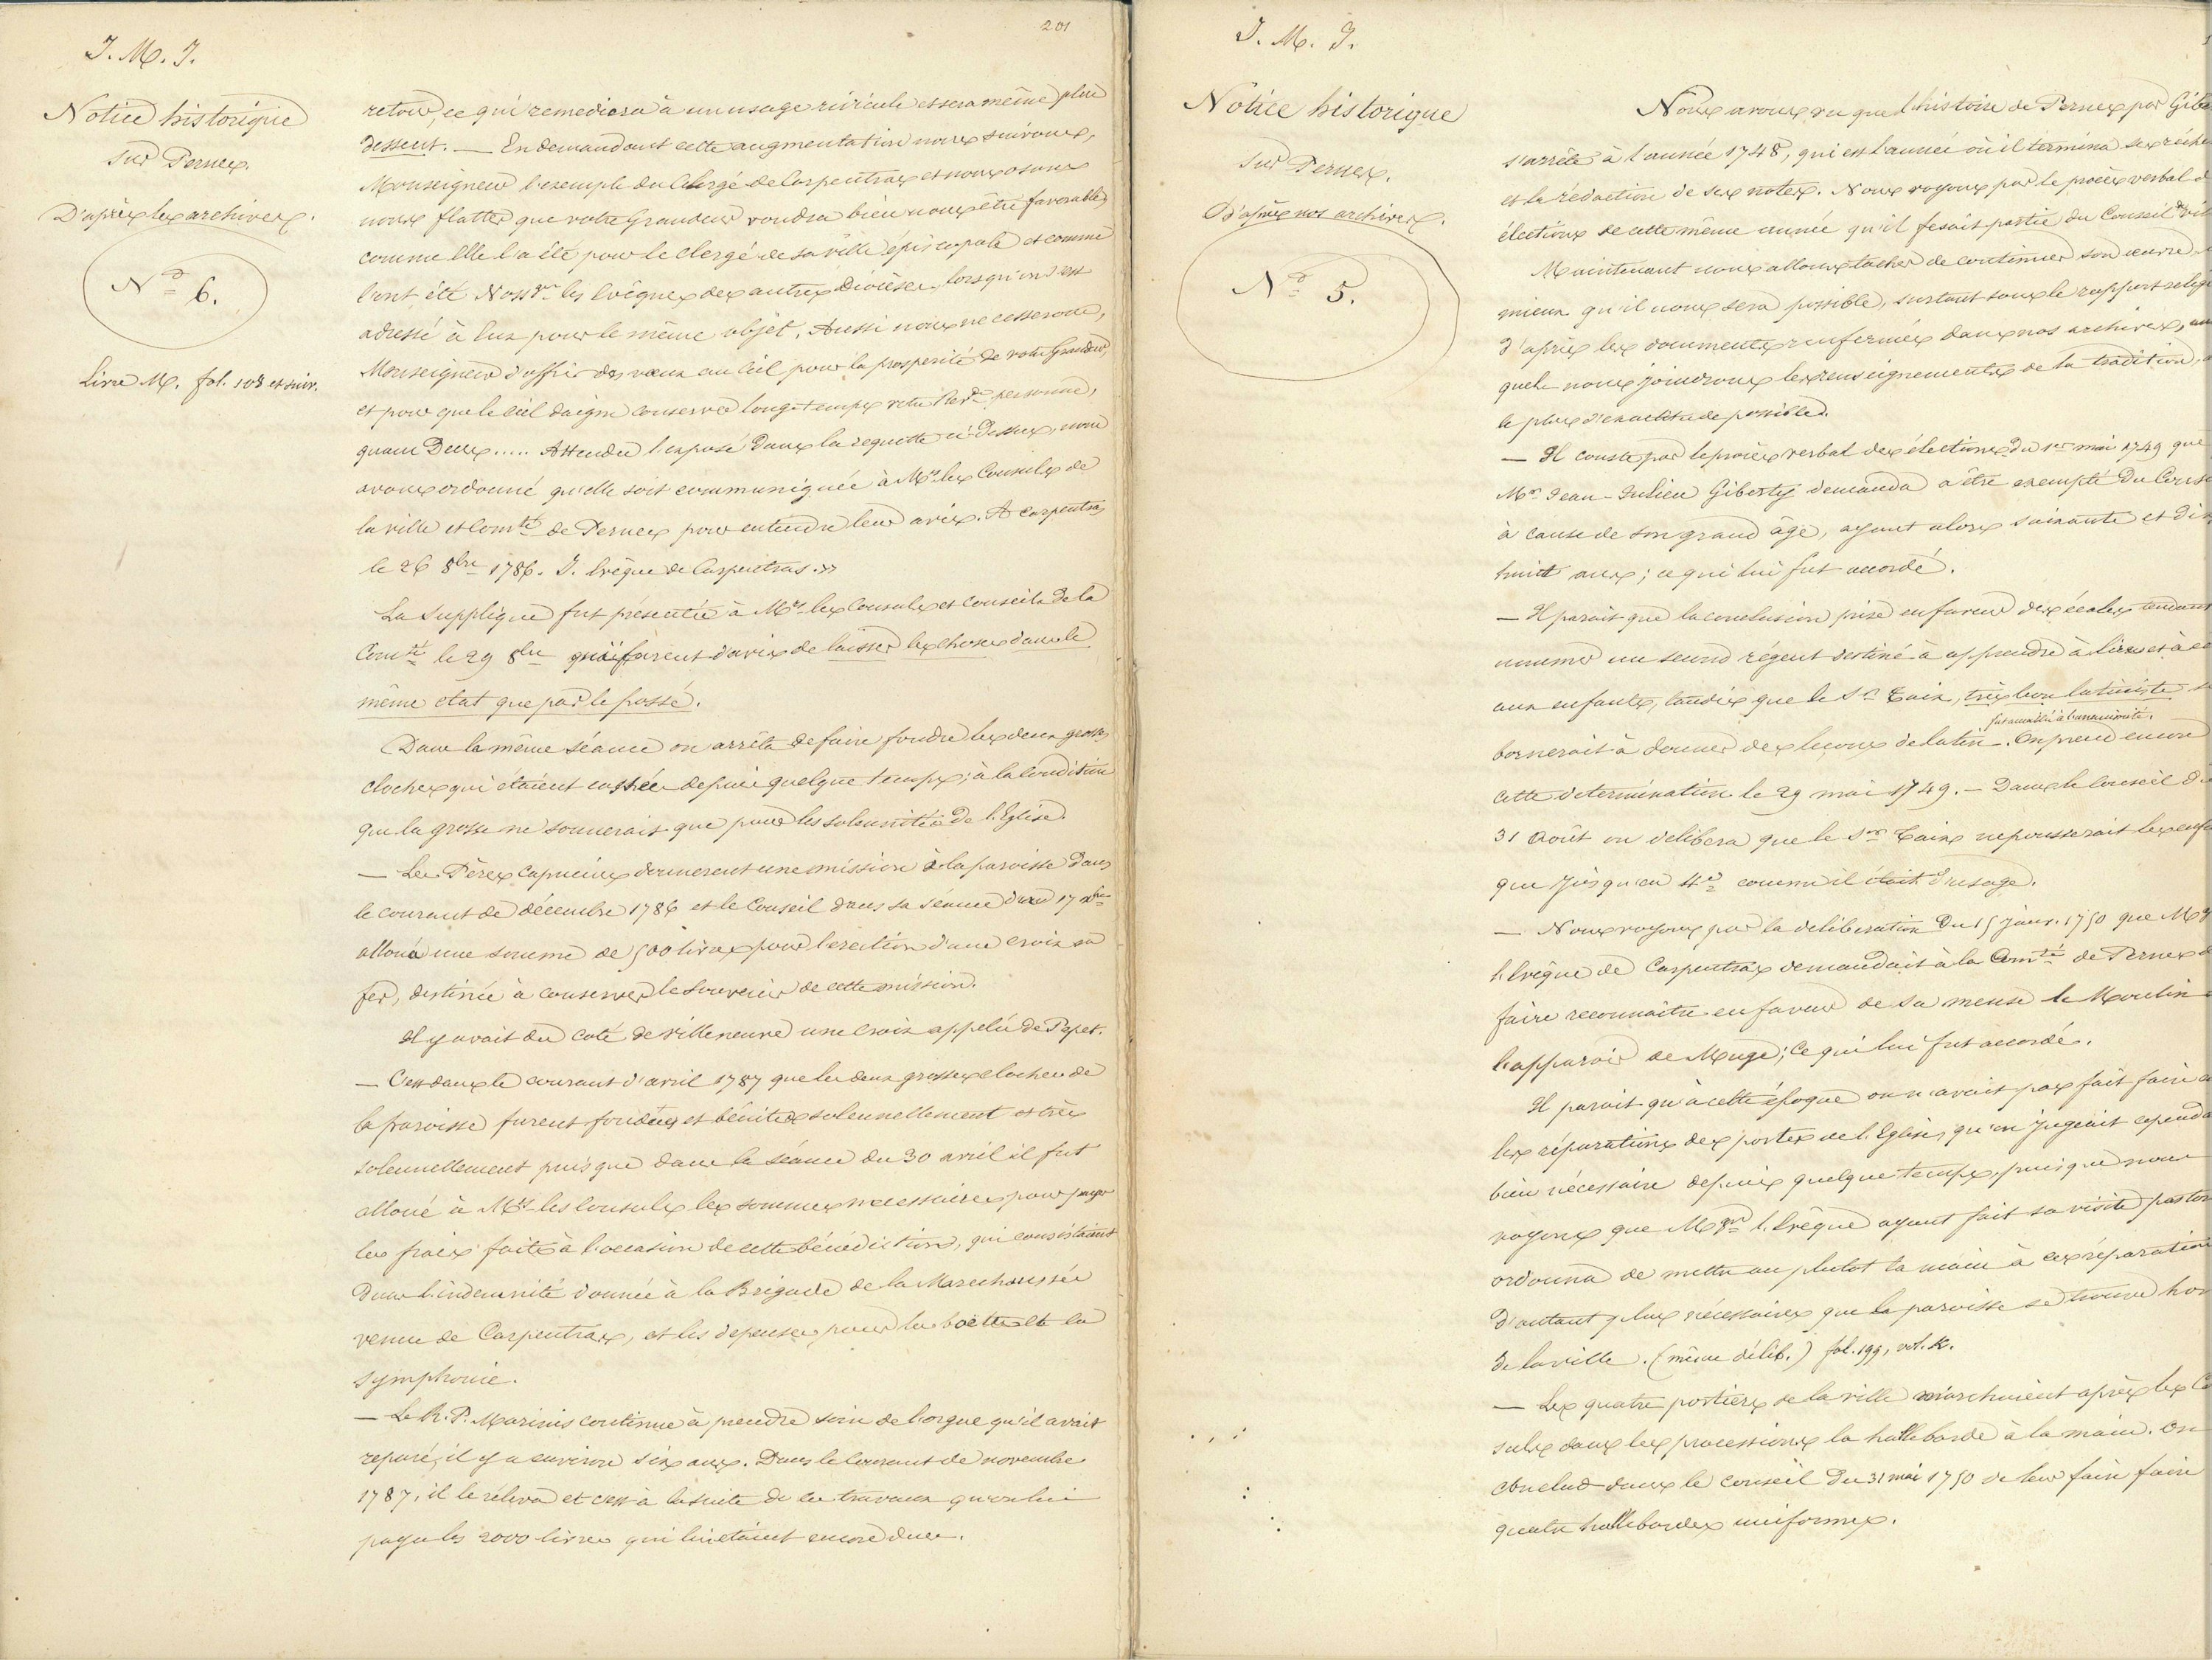 201
J. M. J.
Notice historique
sur Pernes.
D'après les archives.
N° 6.
Livre M. fol. 108 et suiv.
retour, ce qui remediera à un usage ridicule et sera même plus
dessent. — En demandant cette augmentation nous suivons,
Monseigneur l'exemple du Clergé de Carpentras et nous osons
nous flatter que votre Grandeur voudra bien nous être favorable,
comme Elle l'a été pour le Clergé de sa ville épiscopale et comme
l'ont été Noss grs les évêques des autres diocèses, lorsqu'on s'est
adressé à eux pour le même objet. Aussi nous ne cesserons,
Monseigneur d'offrir des vœux au Ciel pour la prosperité de votre Grandeur,
et pour que le ciel daigne conserver longtemps votre Revde personne,
quam Deus..... Attendu l'exposé dans la requette ci-dessus, nous
avons ordonné qu'elle soit communiquée à Mrs les Consuls de
la ville et Comté de Pernes pour entendre leur avis. A Carpentras
le 26 8bre 1786. J. évêque de Carpentras. »
La Supplique fut présentée à Mrs les Consuls et conseil de la
Comté le 29 8bre qui furent d'avis de laisser les choses dans le
même etat que par le passé.
Dans la même séance on arrêta de faire fondre les deux grosses
cloches qui étaient cassées depuis quelque temps; à la condition
que la grosse ne sonnerait que pour les solennités de l'Eglise.
— Les Pères Capucins donnerent une mission à la paroisse dans
le courant de décembre 1786 et le Conseil dans sa séance du 17 xbre
alloua une somme de 500 livres pour l'erection d'une croix en
fer, destinée à conserver le souvenir de cette mission.
Il y avait du coté de Villeneuve une croix appelée de Papet.
— C'est dans le courant d'avril 1787 que les deux grosses cloches de
la paroisse furent fondues et bénites solennellement et très
solennellement puisque dans la séance du 30 avril il fut
alloué à Mrs les Consuls les sommes necessaires pour payer
les frais faits à l'occasion de cette bénédiction, qui consistaient
dans l'indemnité donnée à la Brigade de la Marechaussée
venue de Carpentras, et les depenses pour les boëttes et la
symphonie.
— Le R. P. Marinis continue à prendre soin de l'orgue qu'il avait
reparé, il y a environ six ans. Dans le courant de novembre
1787, il le releva et c'est à la suite de ces travaux qu'on lui
paya les 2000 livres qui lui etaient encore dues.
J. M. J.
Notice historique
sur Pernes.
D'après nos archives.
N° 5.
Nous avons vu que l'histoire de Pernes par Gib
s'arrête à l'année 1748, qui est l'année où il termina ses reche
et la rédaction de ses notes. Nous voyons par le procès verbal d
élections de cette même année qu'il fesait partie du Conseil de vil
Maintenant nous allons tacher de continuer son œuvre, 
mieux qu'il nous sera possible, surtout sous le rapport relig
d'après les documents renfermés dans nos archives, au
quels nous joindrons les renseignements de la tradition, a
le plus d'exactitude possible.
— Il conste par le procès verbal des élections du 1er mai 1749 que
Mr Jean-Julien Giberty demanda à être exempté du Conse
à cause de son grand âge, ayant alors soixante et dix
huit ans; ce qui lui fut accordé.
— Il parait que la conclusion prise en faveur des écoles tendant
nommer un second régent destiné à apprendre à lire et à éc
aux enfants, tandis que le Sr Taix, très bon latiniste se
fut annulée à l'unanimité.
bornerait à donner des leçons de latin. On prend encore
cette détermination le 29 mai 1749. — Dans le Conseil du
31 Août on delibera que le Sr Taix ne pousserait les enfa
que jusqu'en 4e comme il était d'usage.
— Nous voyons par la déliberation du 15 janv. 1750 que Mg
l'évêque de Carpentras demandait à la Comté de Pernes d
faire reconnaître en faveur de sa mense le Moulin
l'apparoir de Mage; ce qui lui fut accordé.
Il parait qu'à cette époque on n'avait pas fait faire
les réparations des portes de l'Eglise, qu'on jugeait cependa
bien nécessaire depuis quelque temps, puisque nous
voyons que Mgr l'évêque ayant fait sa visite pastor
ordonna de mettre au plutot la main à ces réparation
d'autant plus nécessaires que la paroisse se trouve hor
de la ville. (même délib.) fol. 199, vol. K.
— Les quatre portiers de la ville marchaient après les Co
suls dans les processions la hallebarde à la main. On
conclud dans le conseil du 31 mai 1750 de leur faire faire
quatre hallebardes uniformes.